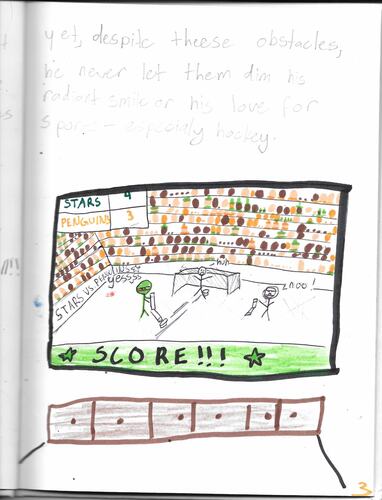 yet, despite theese obstacles,
he never let them dim his
radiant smile or his love for
sports - especialy hockey.
STARS 4
PENGUINS 3
STARS VS. PENGUINS
yessss
huh
nooo!
★ SCORE!!! ★
3